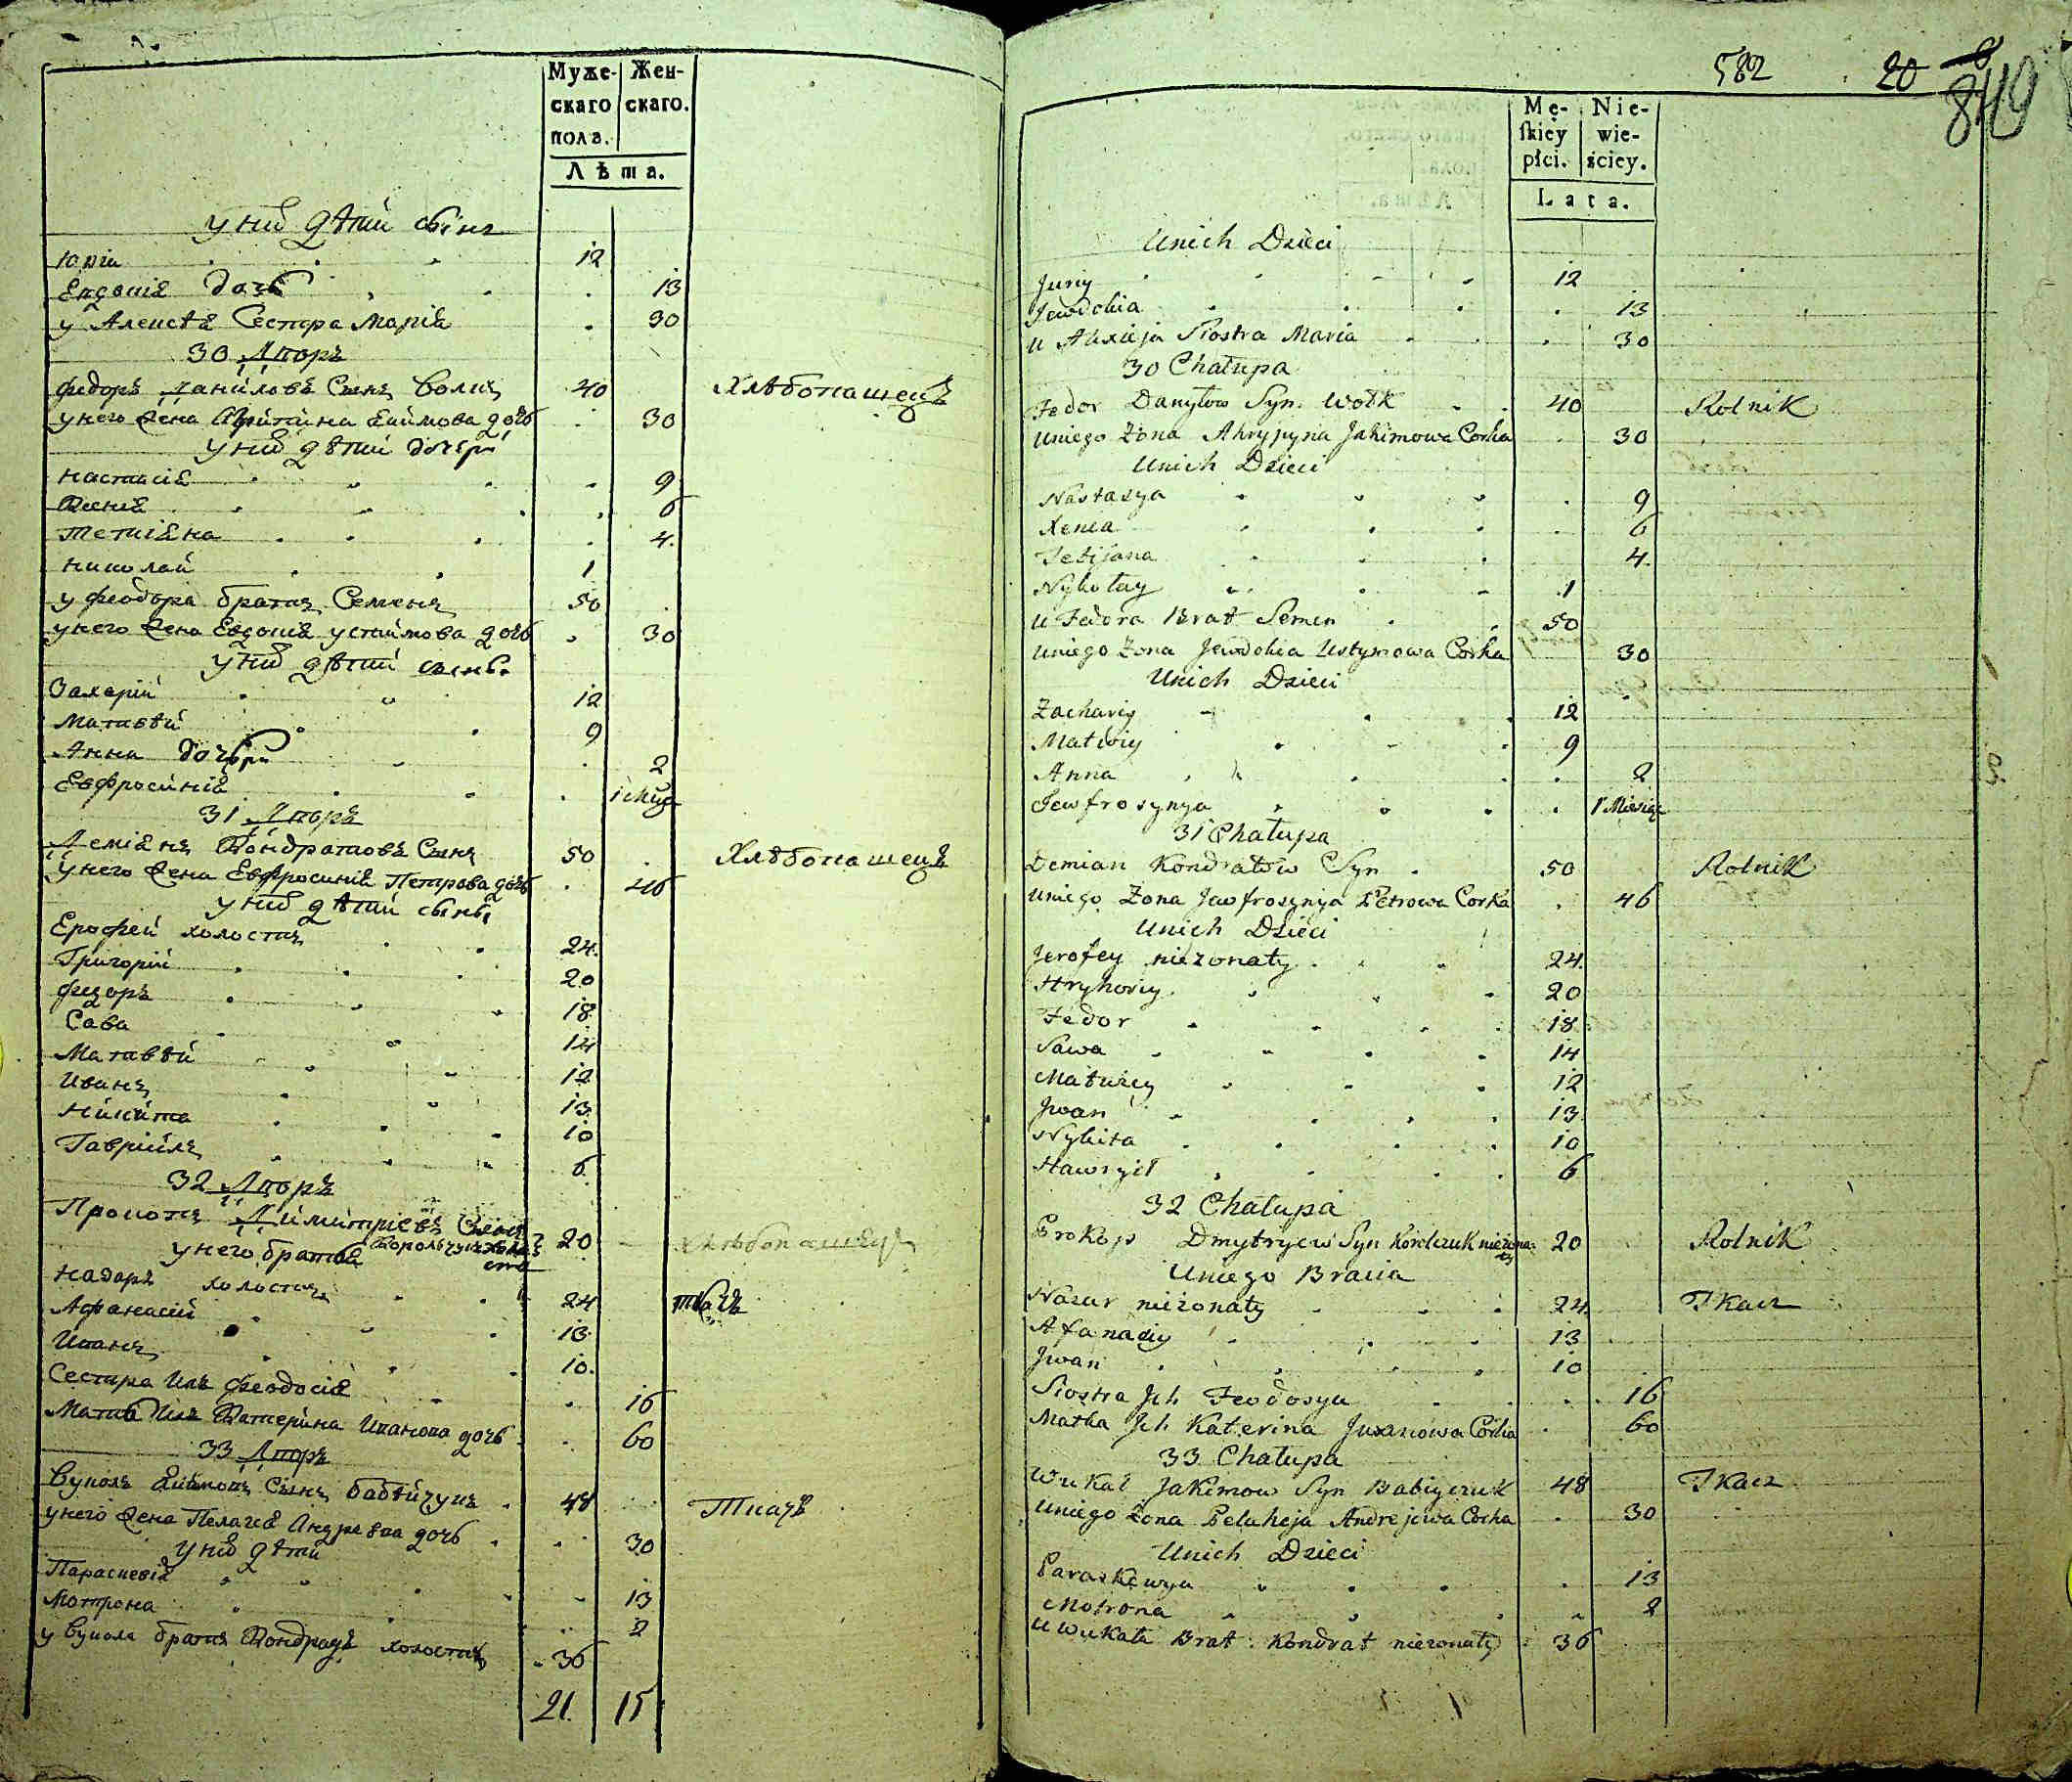 Муже- Жен-
скаго скаго.
пола.
Лѣта.
у них дѣти сынъ
Юрій 12
Евдокія дочь 13
у Алексѣя Сестра Марія 30
30 Дворъ
Федоръ Даниловъ Сынъ Волкъ 40 Хлѣбопашецъ
у него Жена Агрипина Екимова дочь 30
у них дѣти дочери
Настасія 9
Ксенія 6
Тетіяна 4.
Николай 1
у Феодора братъ Семенъ 50
у него Жена Евдокія Устимова дочь 30
у них дѣти сыны
Захарій 12
Матвѣй 9
Анна дочери 2
Евфросинія
31 Дворъ
Деміянъ Кондратовъ Сынъ 50 Хлѣбопашецъ
у него Жена Евфросинія Петрова дочь 46
у них дѣти сыны
Ерофей холостъ 24.
Григорій 20
Федоръ 18
Сава 14
Матвѣй 12
Иванъ 13
Никита 10
Гавріилъ 6
32 Дворъ
Прокопъ Димитріевъ Сынъ 20 хлѣбопашецъ
у него братья
Назаръ холостъ 24 ткачъ
Афанасій 13
Иванъ 10.
Сестра Ихъ Феодосія 16
Мать Ихъ Катерина Иванова дочь 60
33 Дворъ
Вуколъ Якимовъ Сынъ Бабійчукъ 48 Ткачъ
у него Жена Пелагея Андреева дочь 30
у них дѣти
Параскевія 13
Мотрона 2
у Вукола братъ Кондратъ холостъ 36
21. 15
582 20 849
Mę- Nie-
skiey wie-
płci. ściey.
Lata.
Unich Dzieci
Juriy 12
Jewdokia 13
u Alexieja Siostra Maria 30
30 Chałupa
Fedor Danyłow Syn Wołk 40 Rolnik
Uniego Żona Ahrypyna Jakimowa Corka 30
Unich Dzieci
Nastasya 9
Xenia 6
Tetijana 4.
Nykołay 1
u Fedora Brat Semen 50
Uniego Żona Jewdokia Ustymowa Corka 30
Unich Dzieci
Zachariy 12
Matwiy 9
Anna 2
Jewfrosynya 1 Miesiąc
31 Chałupa
Demian Kondratow Syn 50 Rolnik
Uniego Żona Jewfrosynya Petrowa Corka 46
Unich Dzieci
Jerofey nieżonaty 24.
Hryhoriy 20
Fedor 18
Sawa 14
Matwiey 12
Jwan 13
Nykita 10
Hawryił 6
32 Chałupa
Prokop Dmytryew Syn Korolczuk nieżona- 20 Rolnik
ty
Uniego Bracia
Nazar nieżonaty 24 Tkacz
Afanasiy 13
Jwan 10
Siostra Jch Feodosya 16
Matka Jch Katerina Jwanowa Corka 60
33 Chałupa
Wukał Jakimow Syn Babiyczuk 48 Tkacz
Uniego Żona Pelaheja Andrejewa Corka 30
Unich Dzieci
Paraskewya 13
Motrona 2
u Wukała Brat Kondrat nieżonaty 36